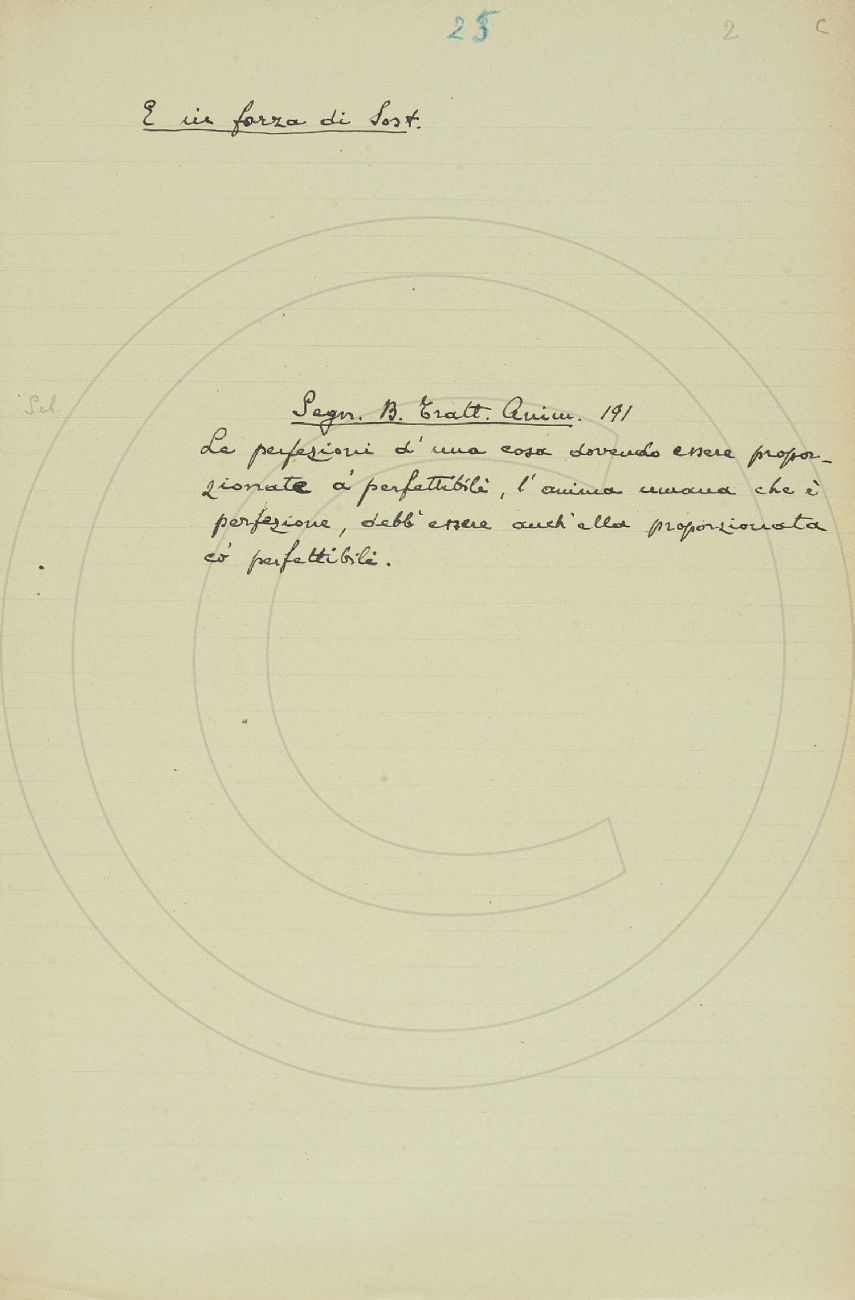 25 2 C
E in forza di Sost.
Segn. B. Tratt. Anim. 191
Le perfezioni d' una cosa dovendo essere propor-
zionate a' perfettibili, l' anima umana che è
perfezione, debb' essere anch' ella proporzionata
co' perfettibili.